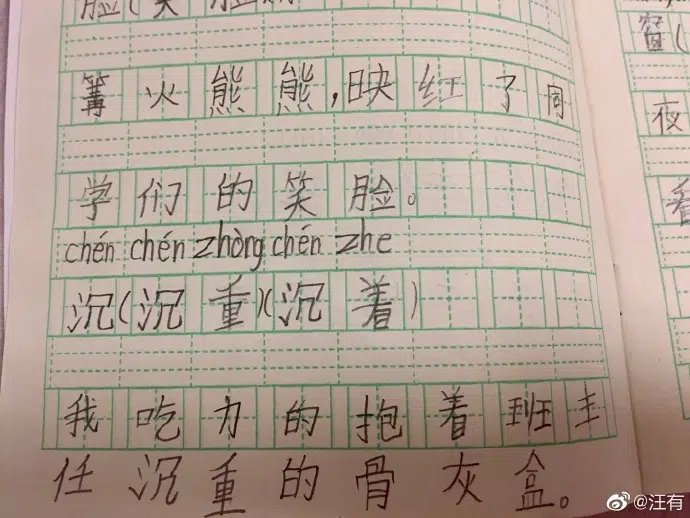 脸(笑脸
篝火熊熊,映红了同
学们的笑脸。
chén chén zhòng chén zhe
沉(沉重)(沉着)
我吃力的抱着班主
任沉重的骨灰盒。
窗(
夜
看
@汪有